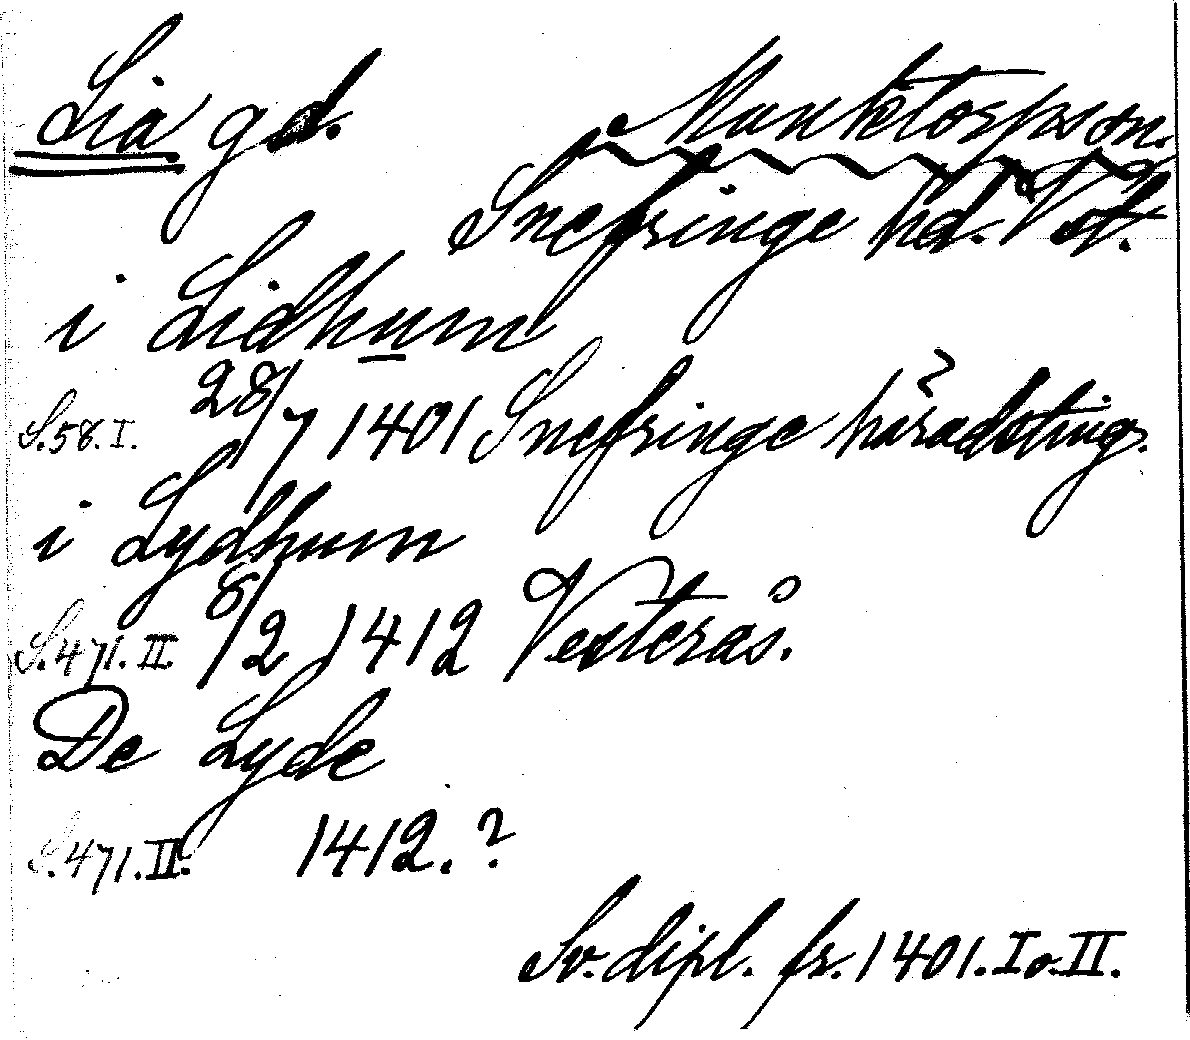 Lia gd. Munktorps sn.
Snefringe hd. Vstt.
i Lidhum
S. 58. I. 28/7 1401 Snefringe häradsting.
i Lydhum
S. 471. II 8/2 1412 Vesterås.
De Lyde
S. 471. II. 1412. ?
Sv. dipl. fr. 1401. I o. II.